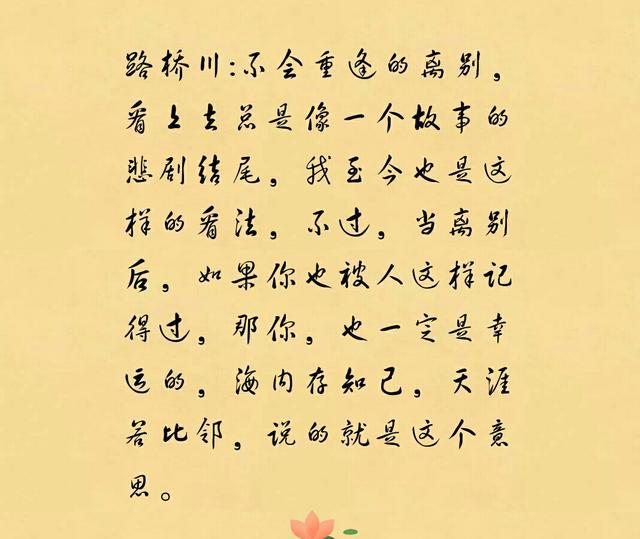 路桥川:不会重逢的离别，
看上去总是像一个故事的
悲剧结尾，我至今也是这
样的看法，不过，当离别
后，如果你也被人这样记
得过，那你，也一定是幸
运的，海内存知己，天涯
若比邻，说的就是这个意
思。